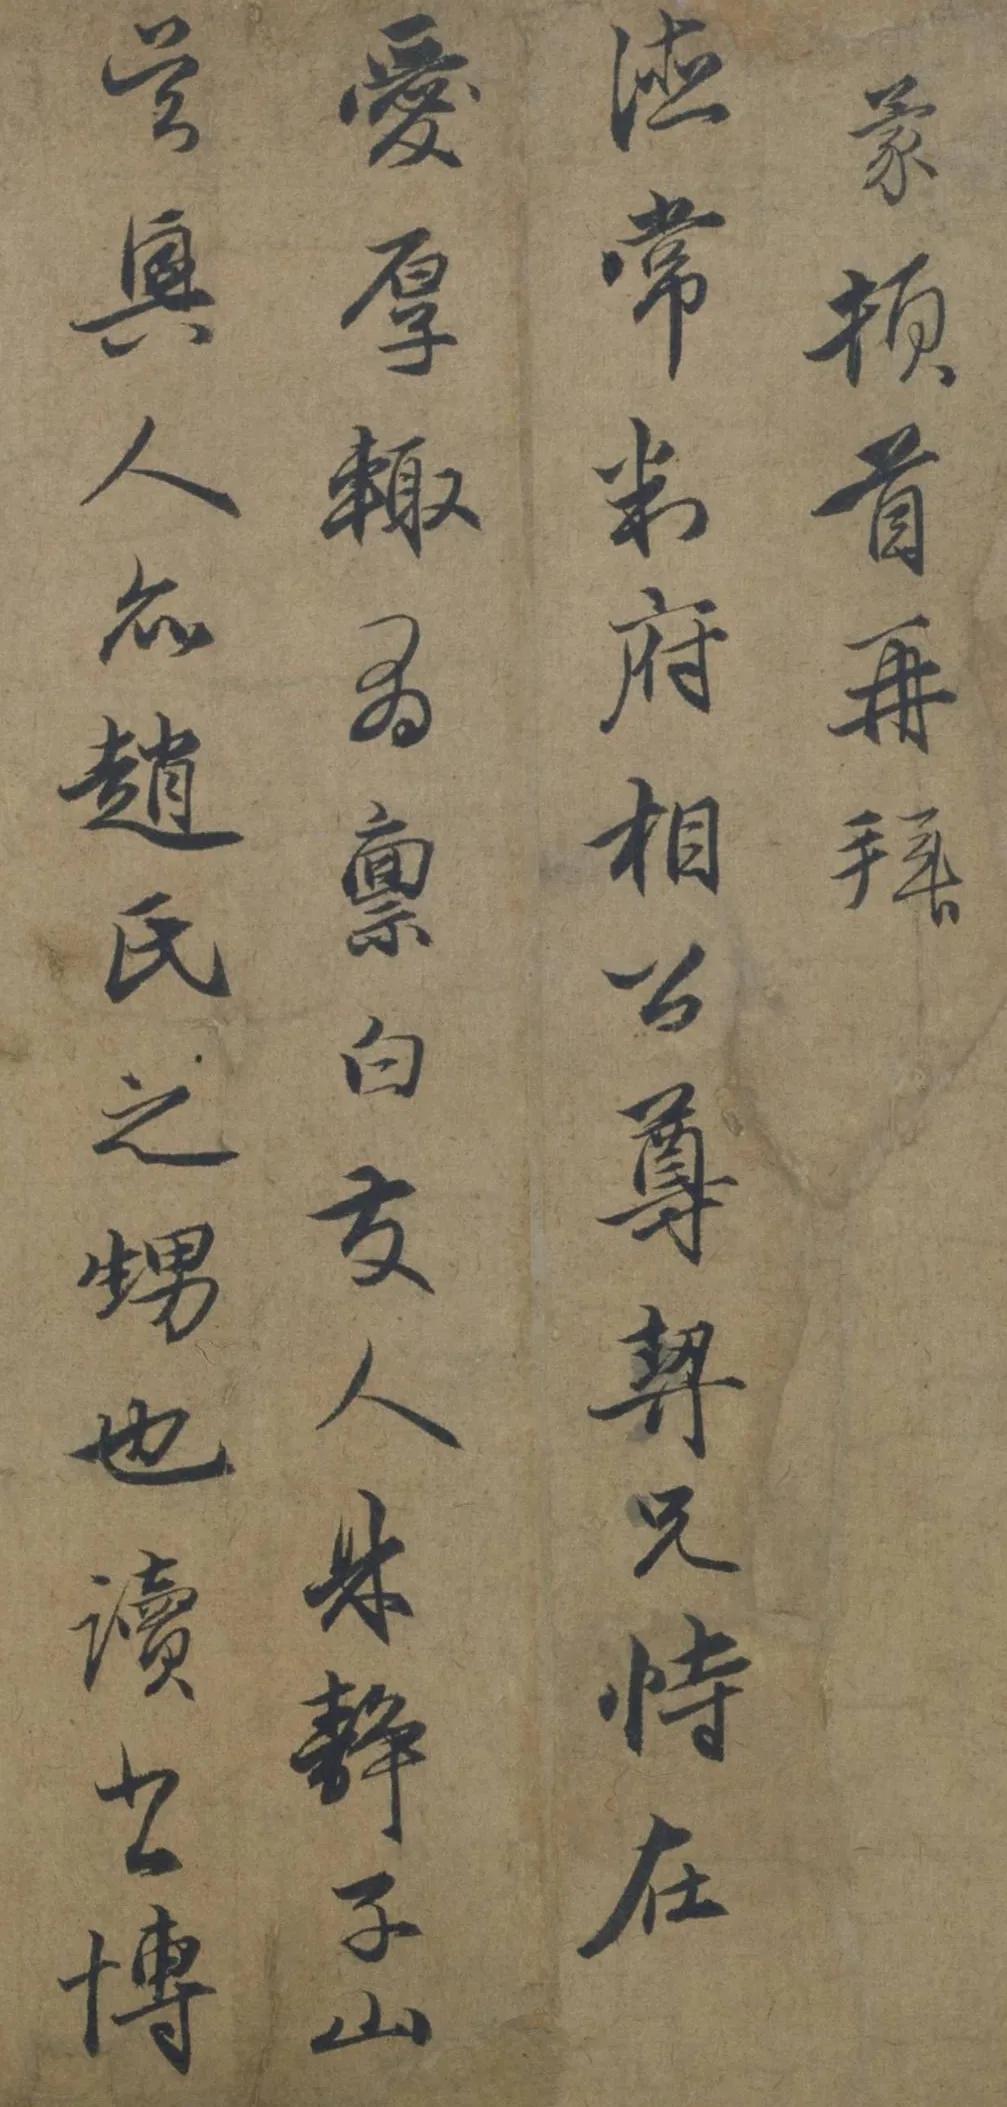 蒙頓首再拜
德常判府相公尊契兄恃在
愛厚輒為稟白友人朱靜子山
吳興人亦趙氏之甥也讀書博